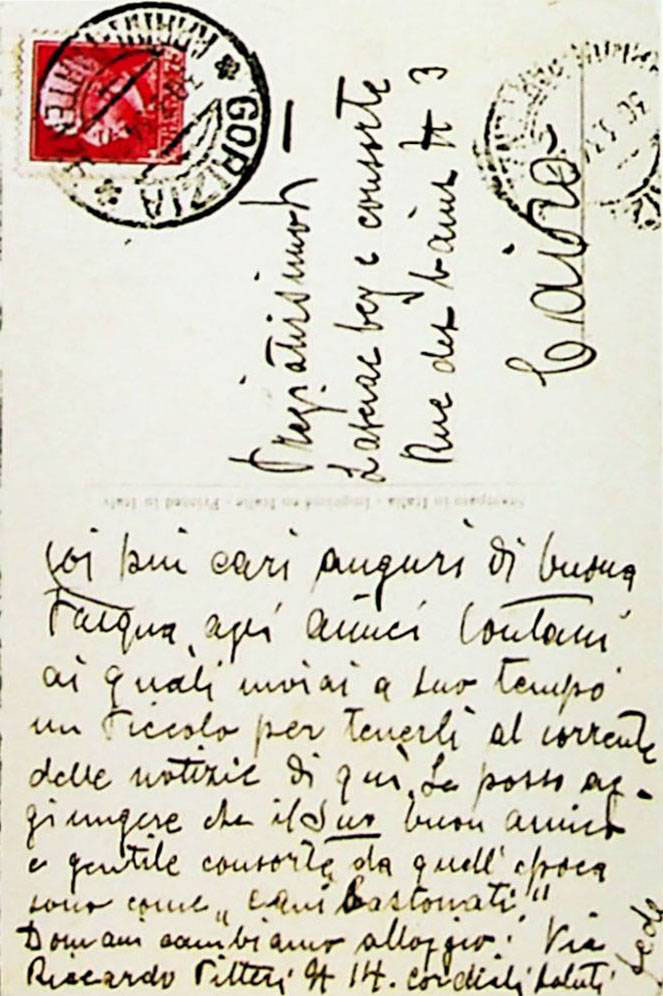 GORIZIA
Pregiatissimoh
Lasciac bey e consorte
Rue des bains # 3
Cairo
Stampato in Italia - Imprimé en Italie - Printed in Italy
coi piu cari auguri di buona
Pasqua, agli amici lontani
ai quali inviai a suo tempo
un Piccolo per tenerli al corrente
delle notizie di quì. Le posso ag-
giungere che il Suo buon amico
e gentile consorte, da quell'epoca
sono come „cani bastonati"
Domani cambiamo alloggio: Via
Riccardo Pitteri # 14. cordiali saluti